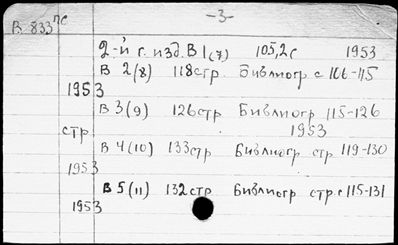 В 833 пс
-3-
2-й г. изд. В 1(7) 105,2с 1953
В 2(8) 118стр Библиогр с 106-115
1953
В 3(9) 126стр Библиогр 115-126
стр. 1953
В 4(10) 133стр Библиогр стр 119-130
1953
В 5(11) 132стр Библиогр стр с 115-131
1953